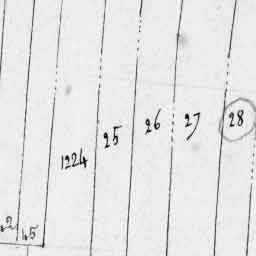 1224 25 26 27 28